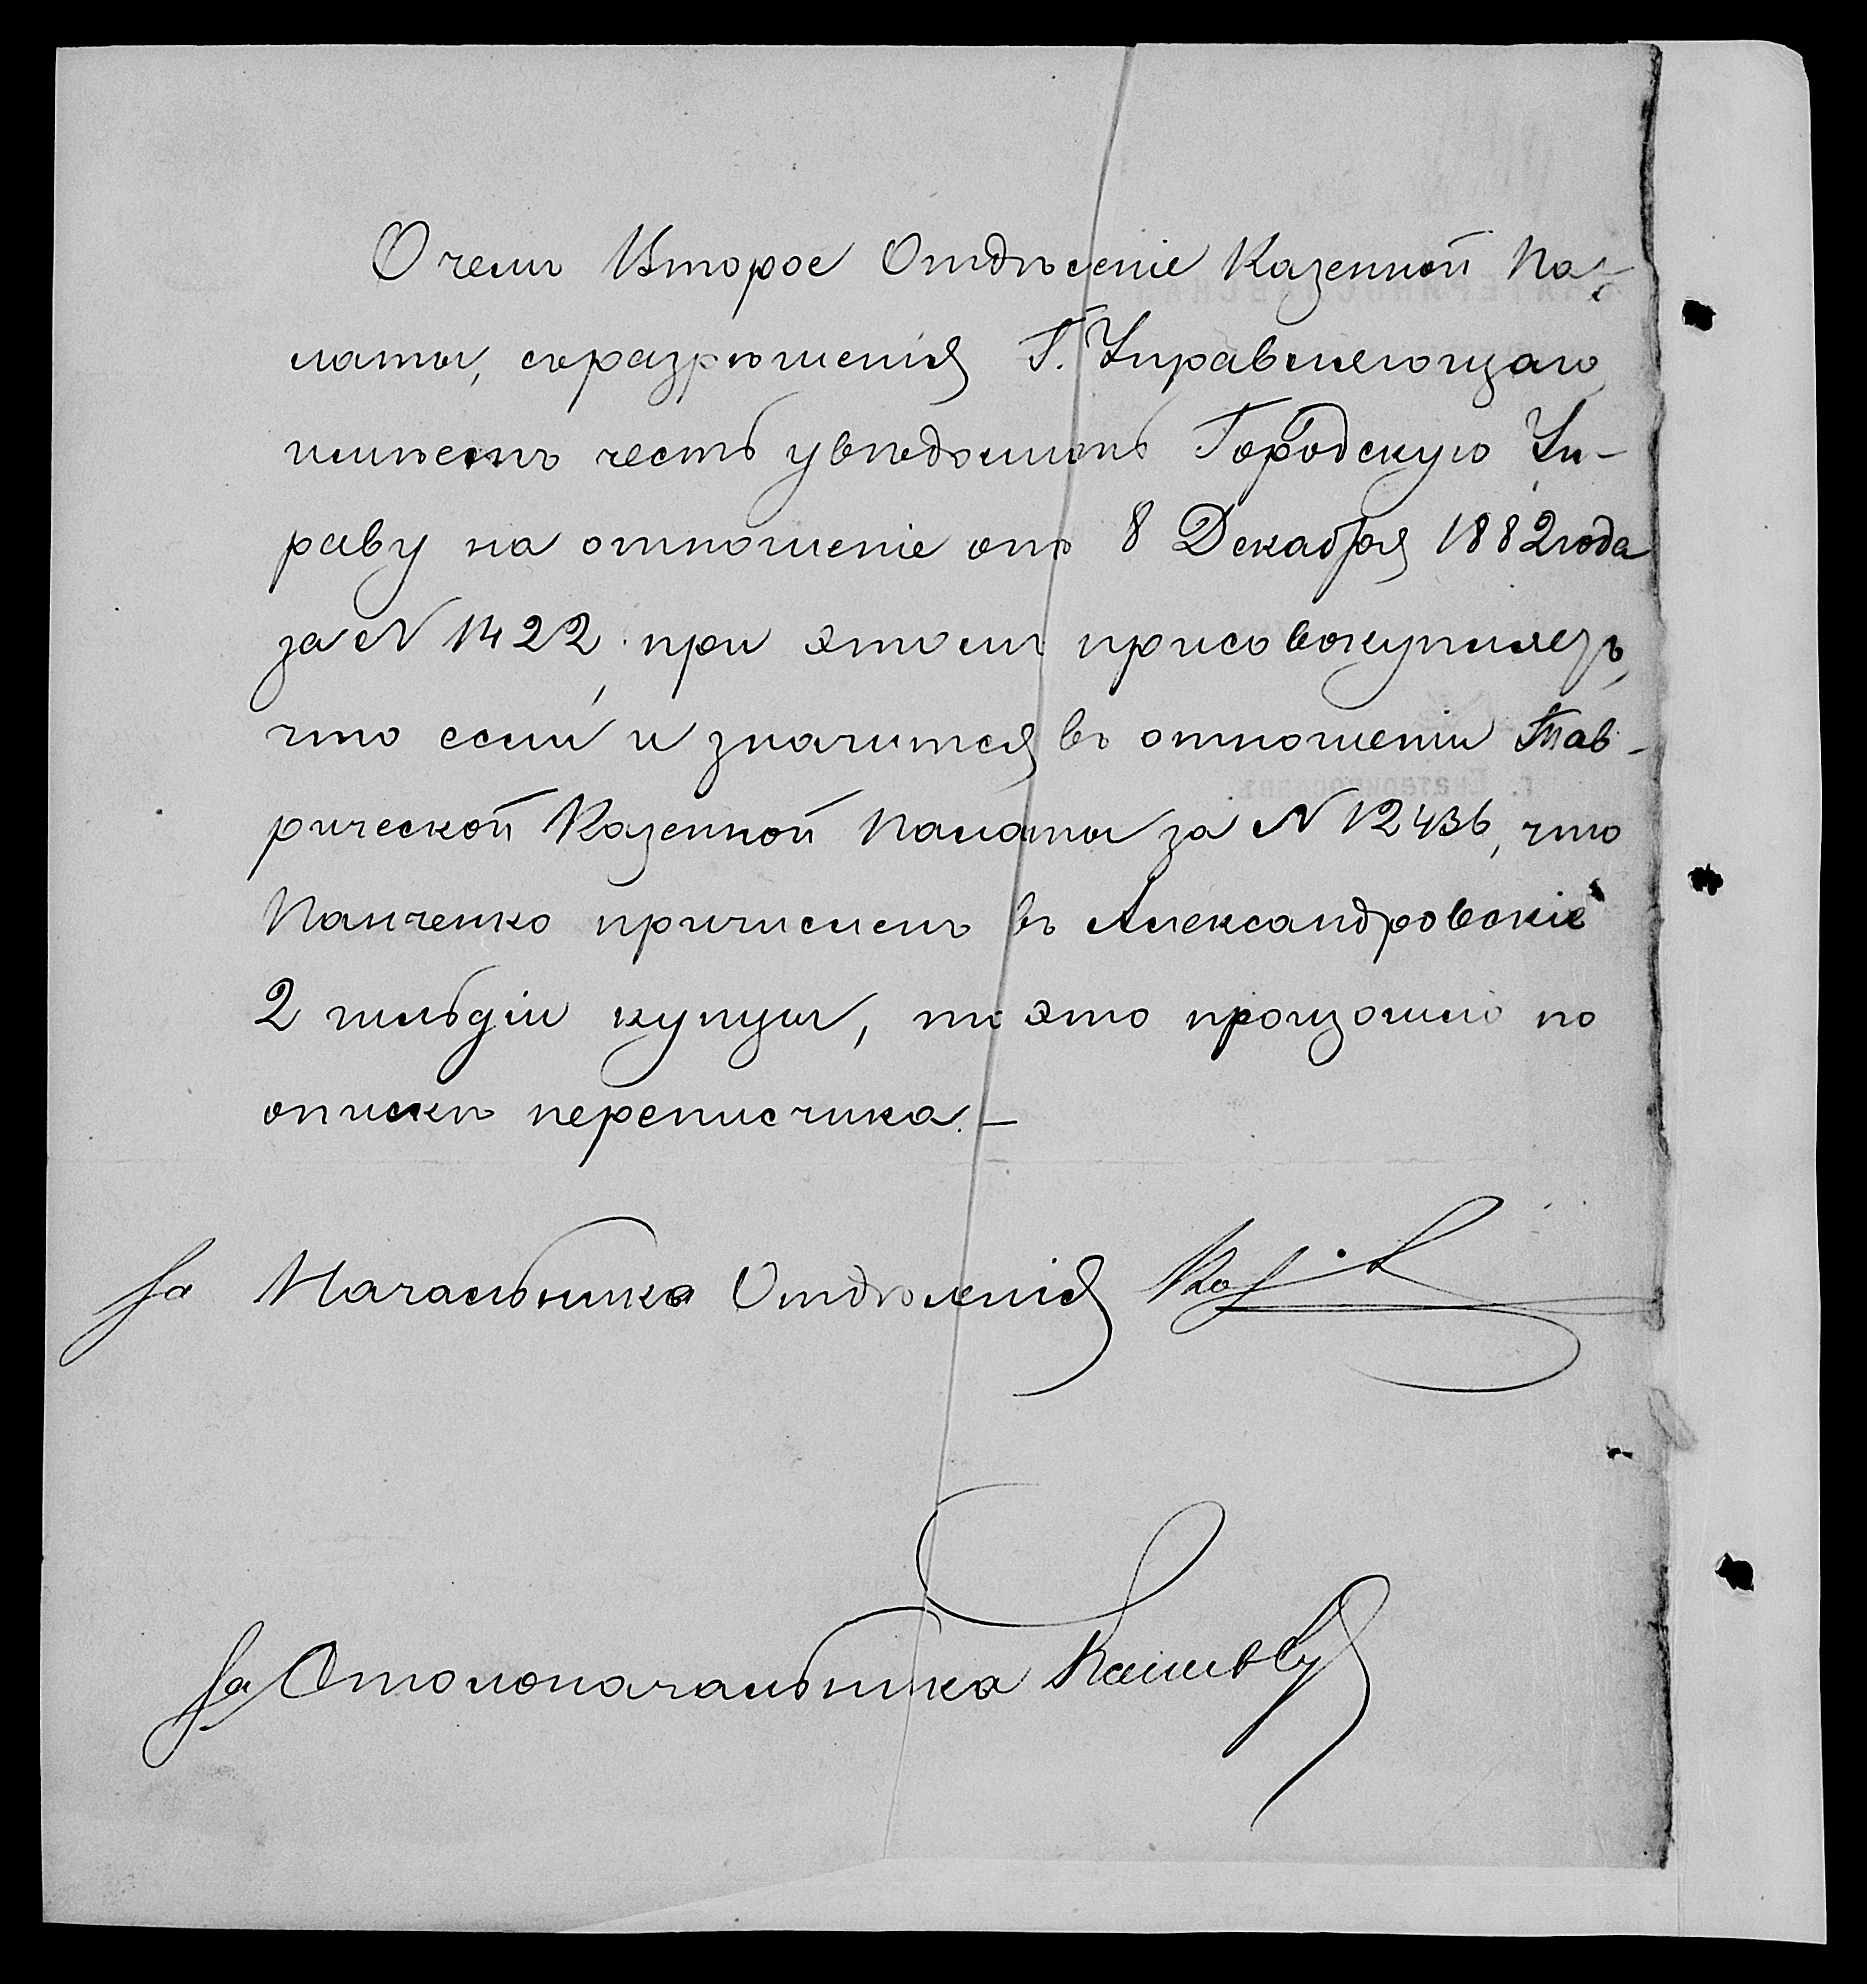 О чемъ Второе Отдѣленіе Казенной Па-
латы, съ разрѣшенія Г. Управляющаго,
имѣетъ честь увѣдомить Городскую Уп-
раву на отношеніе отъ 8 Декабря 1882 года
за N 1422, при этомъ присовокупляетъ,
что если и значится въ отношеніи Тав-
рической Казенной Палаты за N 12436, что
Панченко причисленъ въ Александровскіе
2 гильдіи купцы, то это произошло по
опискѣ переписчика.—
За Начальника Отдѣленія
За Столоначальника